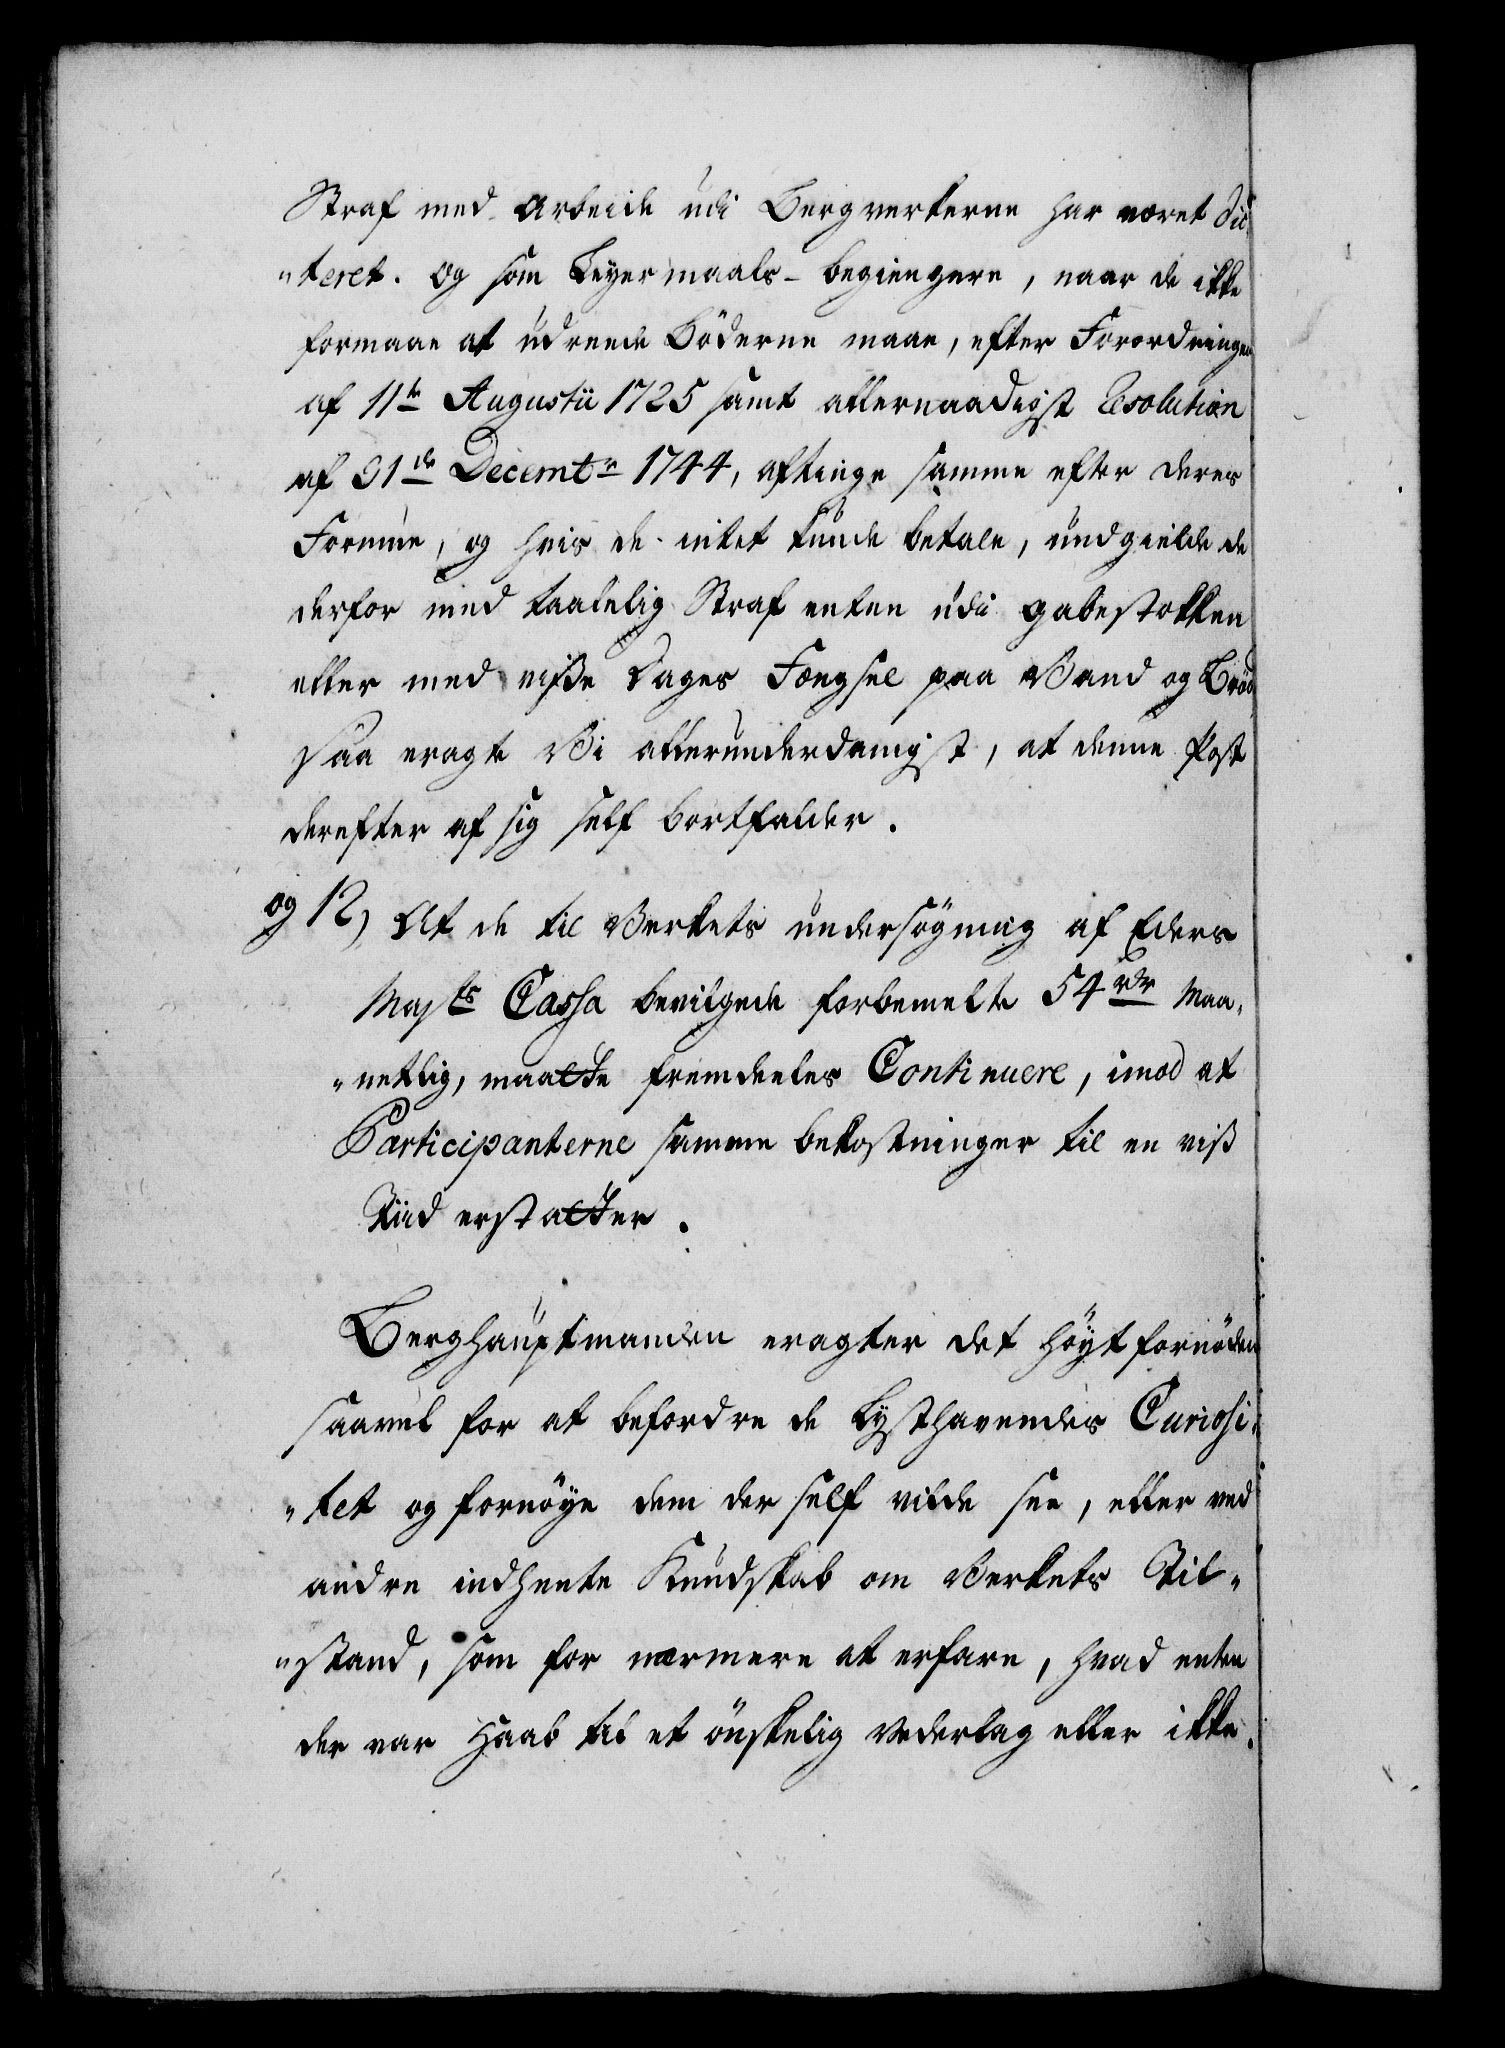 Straf med Arbeide udi Bergverkerne har været dic¬
„teret. Og som Leyermaals-begiengere, naar de ikke
formaae at udreede Böderne maae, efter Forordningen
af 11te Augustii 1725 samt allernaadigst Resolution
af 31de Decembr 1744, aftinge samme efter deres
Formue, og hvis de intet kunde betale, undgielde de
derfor med taalelig Straf enten udi gabestokken
eller med visse Dages Fængsel paa Vand og Bröd,
saa eragte Vi allerunderdanigst, at denne Post
derefter af sig self bortfalder.
og 12) At de til Verkets undersögning af Eders
Majts Cassa bevilgede forbemelte 54 rdr maa„
„netlig, maatte fremdeeles Continuere, imod at
Participanterne samme bekostninger til en viss
Tiid erstatter.
Berghauptmanden eragter det höyt fornöden
saavel for at befordre de lysthavendes Curiosi„
„tet og fornöye dem der self vilde see, eller ved
andre indhente Kundskab om Verkets Til„
„stand, som for nærmere at erfare, hvad enten
der var Haab til et önskelig Vederlag eller ikke.